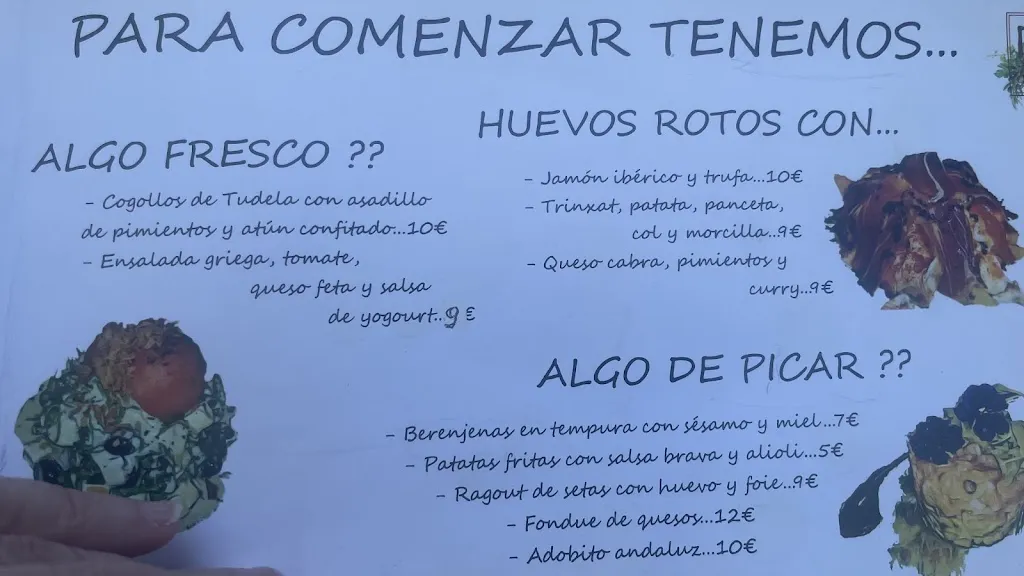 PARA COMENZAR TENEMOS...
ALGO FRESCO ??
- Cogollos de Tudela con asadillo
de pimientos y atún confitado...10€
- Ensalada griega, tomate,
queso feta y salsa
de yogourt..9 €
HUEVOS ROTOS CON...
- Jamón ibérico y trufa...10€
- Trinxat, patata, panceta,
col y morcilla..9€
- Queso cabra, pimientos y
curry..9€
ALGO DE PICAR ??
- Berenjenas en tempura con sésamo y miel...7€
- Patatas fritas con salsa brava y alioli...5€
- Ragout de setas con huevo y foie..9€
- Fondue de quesos...12€
- Adobito andaluz...10€